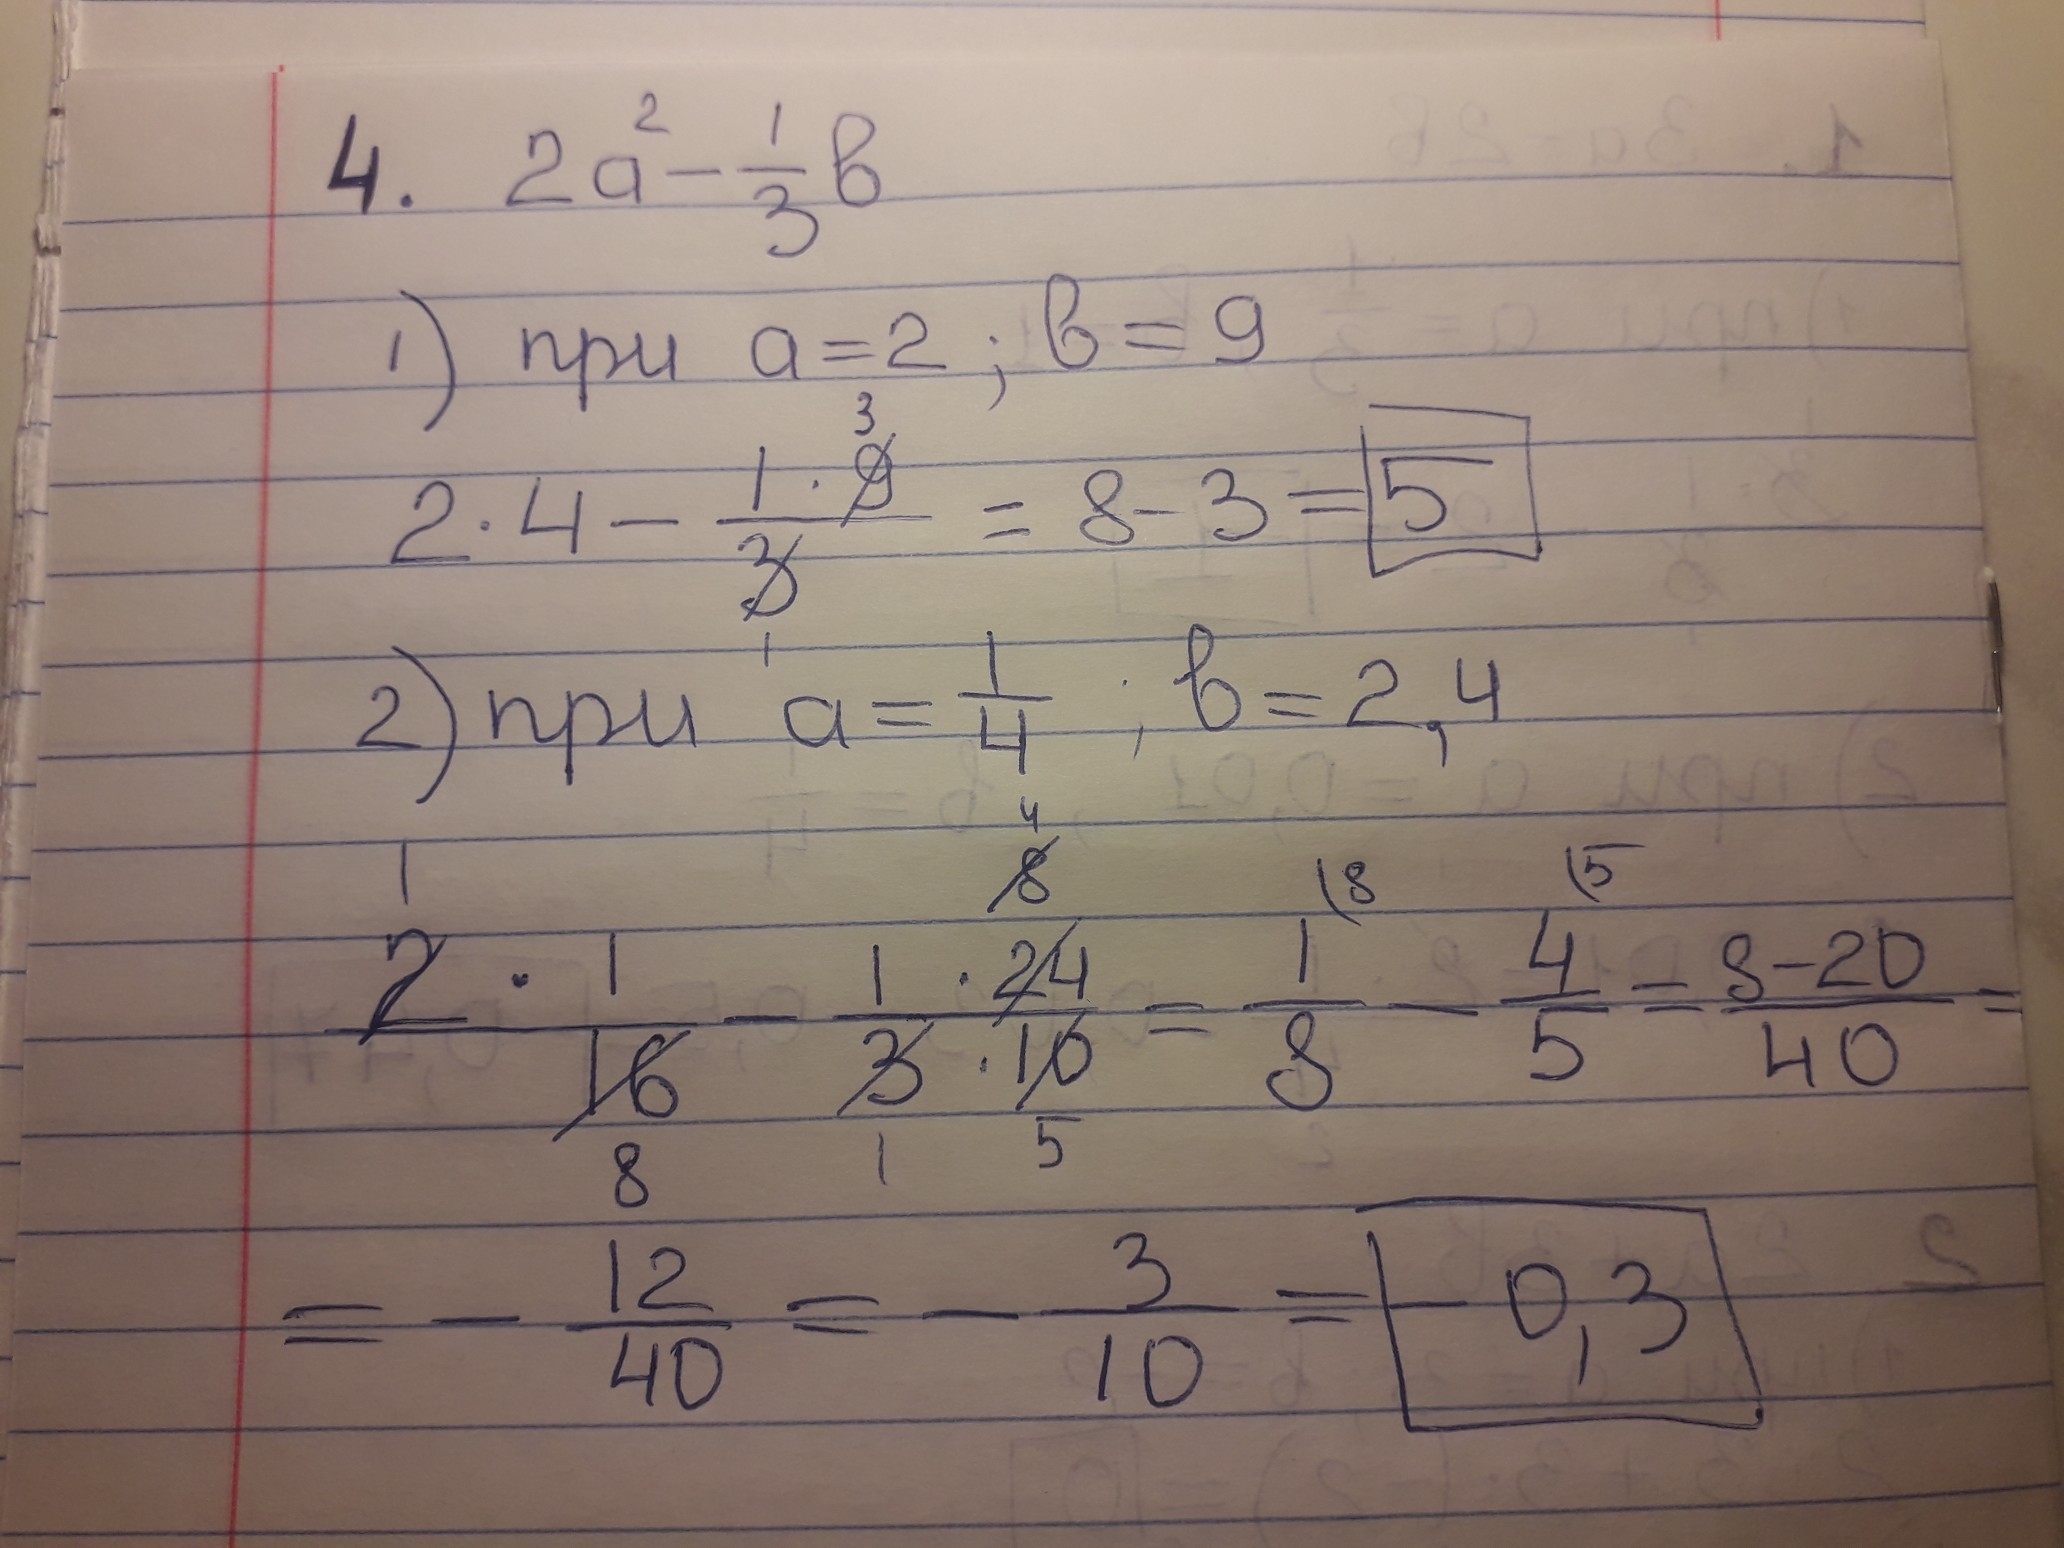 4. 2a² - 1/3 в
1) при a=2 ; в=9
2·4 - (1·9)/3 = 8-3 = 5
3
1
2) при a= 1/4 ; в=2,4
1 4
8 (8 (5
2 · 1/16 - (1·24)/(3·10) = 1/8 - 4/5 = (8-20)/40 =
8 1 5
= - 12/40 = - 3/10 = - 0,3